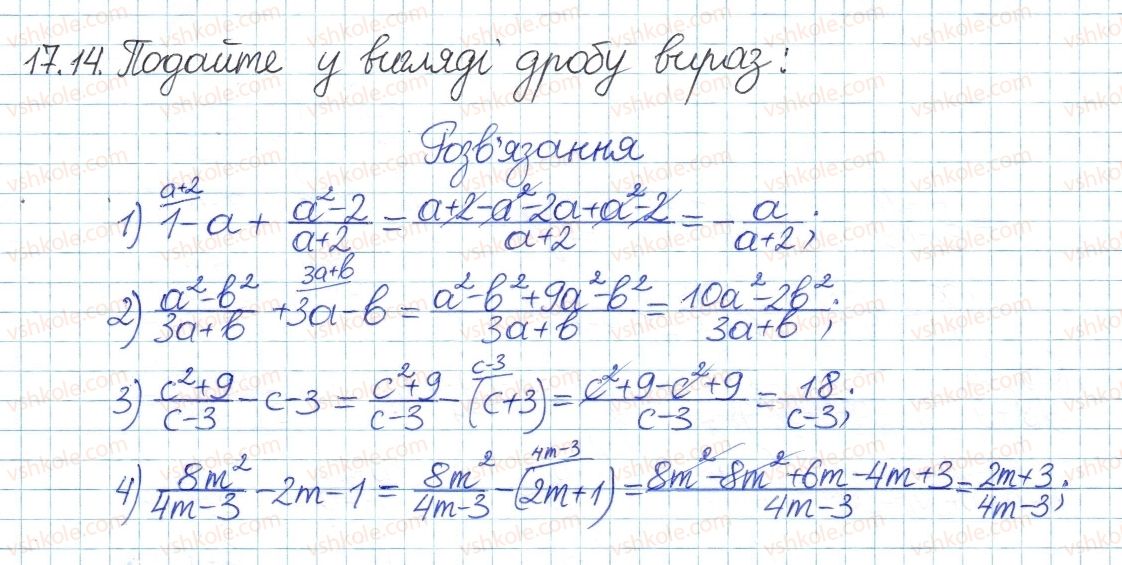 17.14. Подайте у вигляді дробу вираз:
Розв'язання
1) 1 - a + (a² - 2)/(a+2) = (a+2-a²-2a+a²-2)/(a+2) = - a/(a+2);
a+2
2) (a²-b²)/(3a+b) + 3a - b = (a²-b²+9a²-b²)/(3a+b) = (10a²-2b²)/(3a+b);
3a+b
3) (c²+9)/(c-3) - c - 3 = (c²+9)/(c-3) - (c+3) = (c²+9-c²+9)/(c-3) = 18/(c-3);
c-3
4) 8m²/(4m-3) - 2m - 1 = 8m²/(4m-3) - (2m+1) = (8m²-8m²+6m-4m+3)/(4m-3) = (2m+3)/(4m-3);
4m-3
vshkole.com